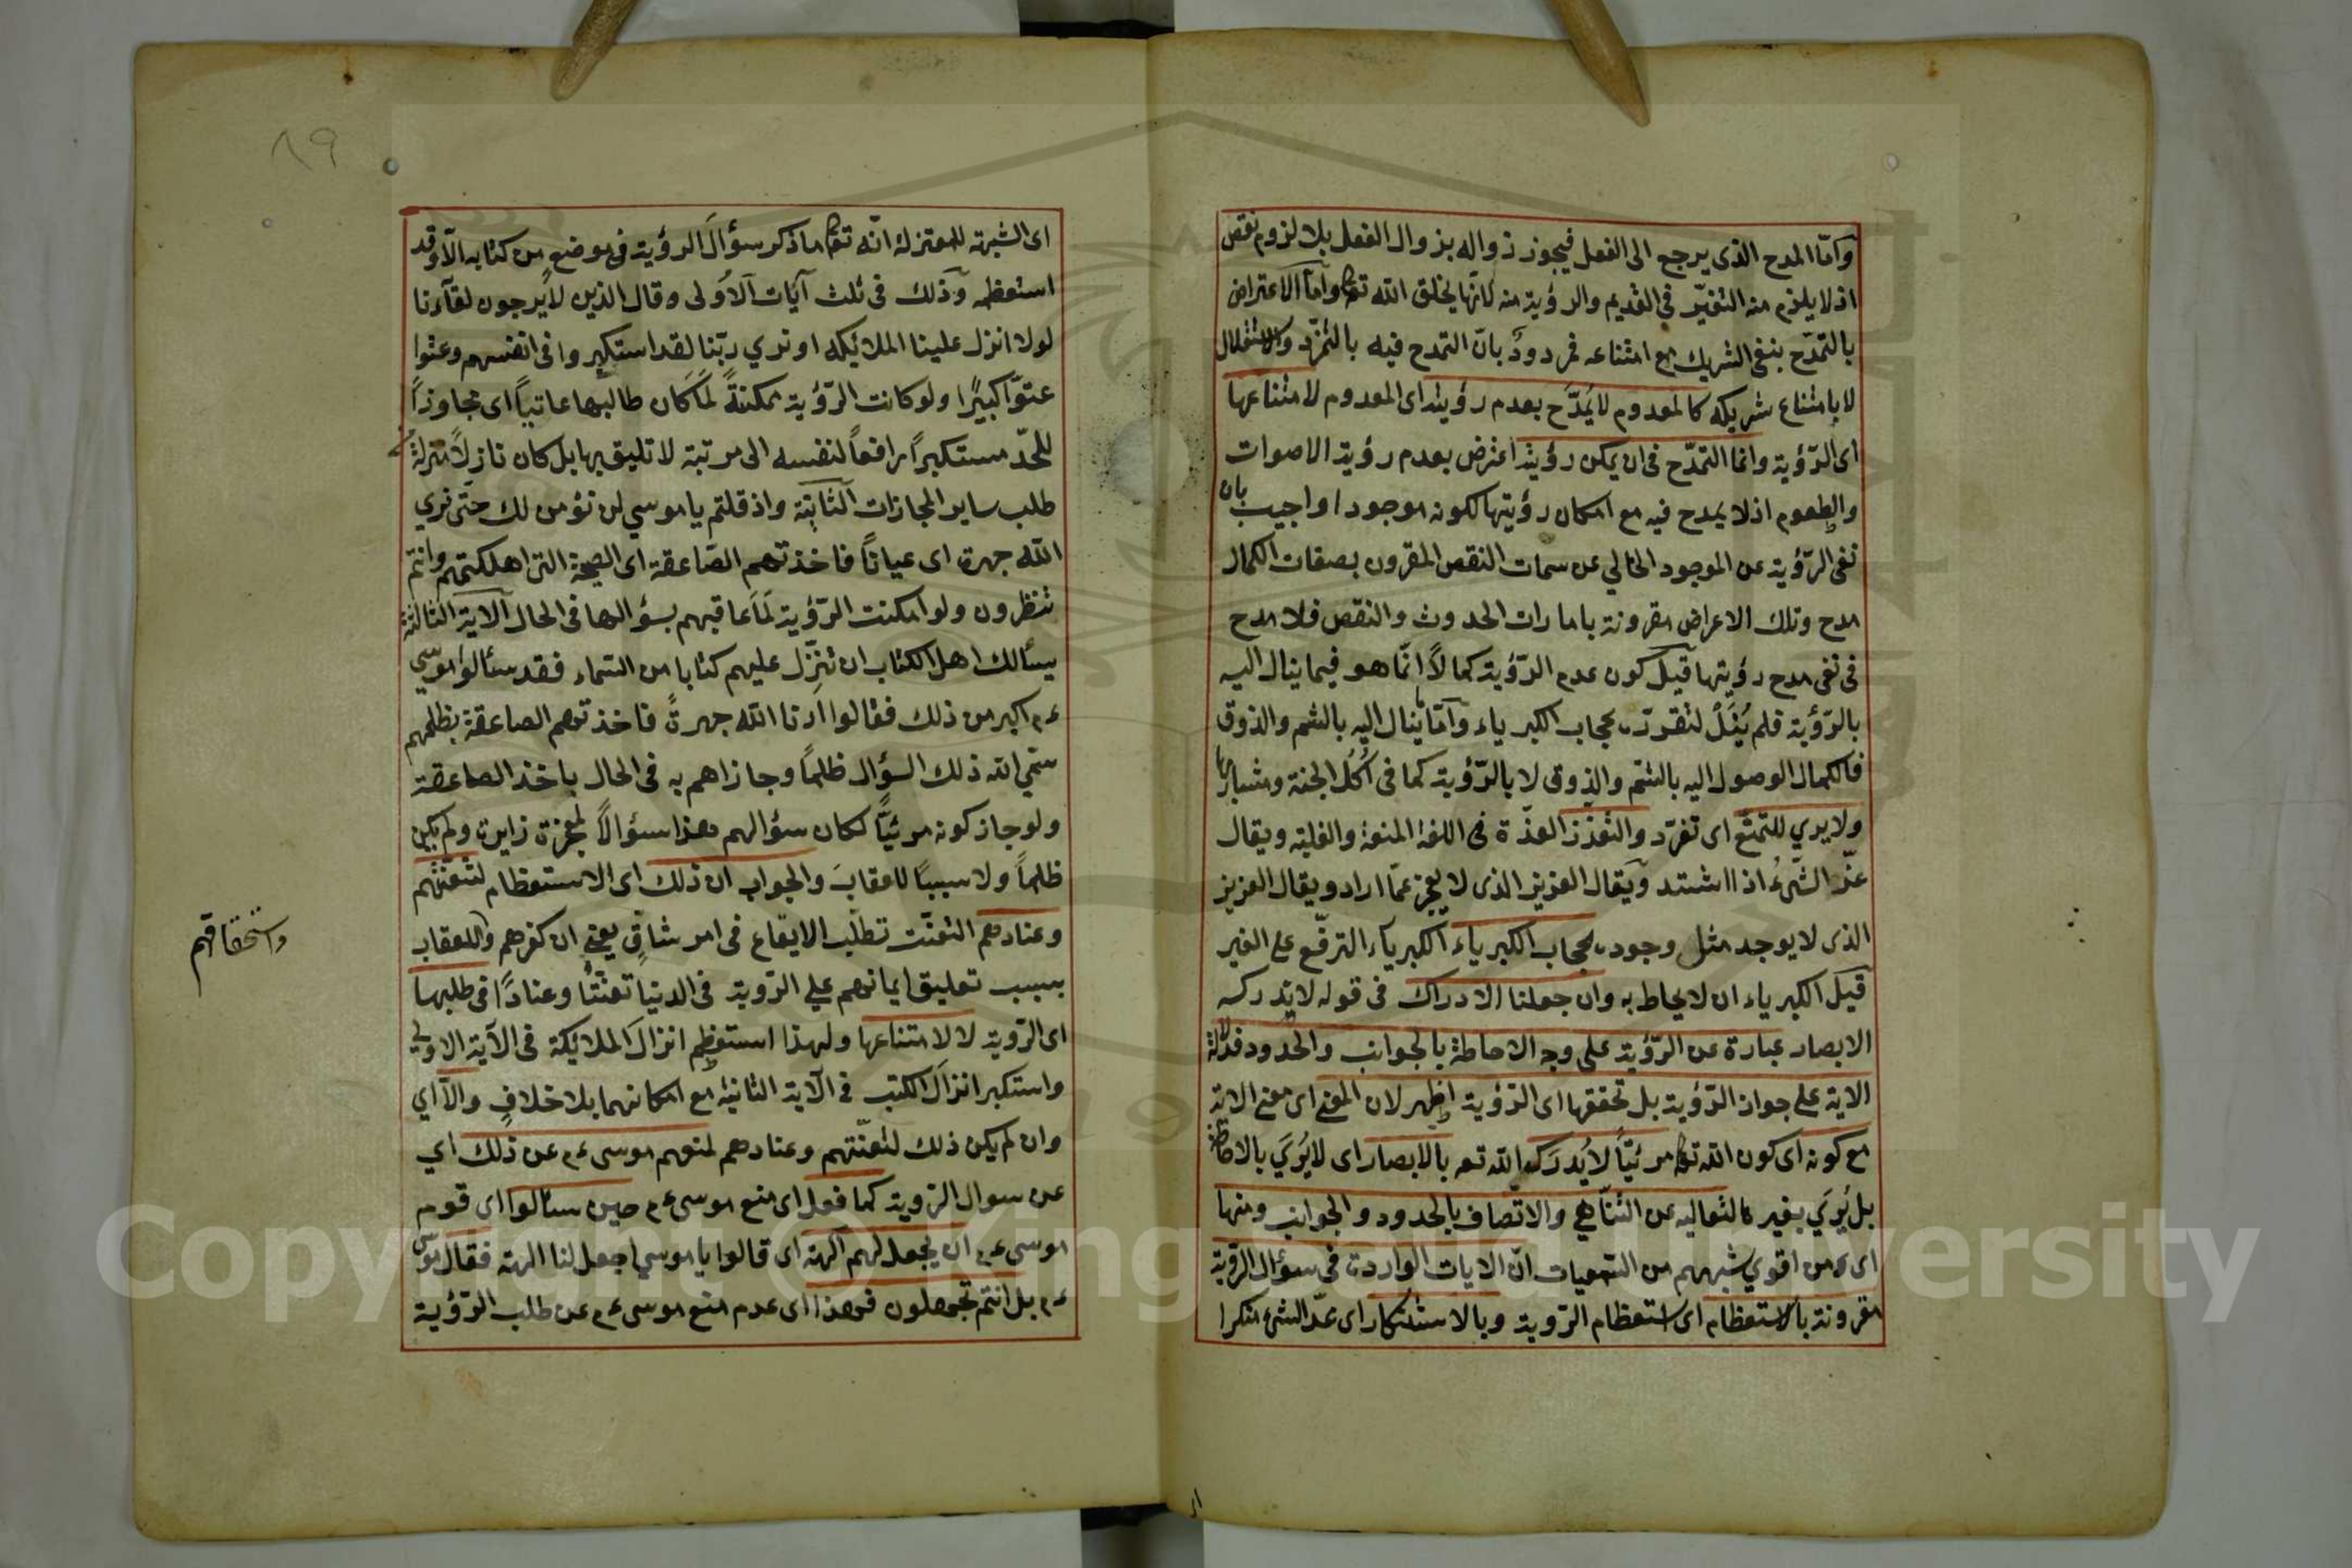 وامّا المدح الذى يرجع الى الفعل فيجوز زواله بزوال الفعل بلا لزوم نقص
اذ لا يلزم منه التغيّر فى القديم والرؤية منه لانّها بخلق الله تعا وامّا الاعتراض
بالتمدّح بنفى الشريك مع امتناعه فمردودٌ بانّ التمدح فيه بالتفرّد والاستقلال
لا بامتناع شريكه كالمعدوم لا يُمدَّح بعدم رؤيته اى المعدوم لامتناعها
اى الرّؤية وانما التمدّح فى ان يمكن رؤيته اعترض بعدم رؤية الاصوات
والطعوم اذ لا يمدح فيه مع امكان رؤيتها لكونه موجودا واجيب بان
نفى الرّؤية عن الموجود الخالي عن سمات النقص المقرون بصفات الكمال
مدح وتلك الاعراض مقرونة بامارات الحدوث والنقص فلا مدح
فى نفى مدح رؤيتها قيل كون عدم الرّؤية كمالاً انّما هو فيما ينال اليه
بالرّؤية فلم يُنَلْ لتفرّده بحجاب الكبرياء وامّا ما ينال اليه بالشم والذوق
فالكمال الوصول اليه بالشمّ والذوق لا بالرّؤية كما فى اُكُل الجنة ومشاربها
ولا يري للتمتّع اى تفرّد والتعزّز العزّة فى اللغة المنعة والغلبة ويقال
عزّ الشّىءُ اذا اشتد ويقال العزيز الذى لا يعجز عمّا اراد ويقال العزيز
الذى لا يوجد مثل وجوده بحجاب الكبرياء الكبرياء الترفّع على الغير
قيل الكبرياء ان لا يحاط به وان جعلنا الادراك فى قوله لا يدركه
الابصار عبارة عن الرّؤية على وجه الاحاطة بالجوانب والحدود فدلالة
الاية على جواز الرّؤية بل تحققها اى الرّؤية اظهر لان المعنى اى معنى الاية
مع كونه اى كون الله تعا مرئيّاً لا يُدرَك الله تعه بالابصار اى لا يُرَي بالاحاطة
بل يُرَي بغيرها لتعاليه عن التّناهي والاتّصاف بالحدود والجوانب ومنها
اى ومن اقوي شبههم من السّمعيات انّ الايات الواردة فى سؤال الرّؤية
مقرونة بالاستعظام اى استعظام الرّوية وبالاستنكار اى عدّ الشئ منكرا
٨٩
اى الشبهة للمعتزلة انّه تعا ما ذكر سؤالَ الرؤية فى موضع من كتابه الّا وقد
استعظمه وذلك فى ثلث آيات الاُولى وقال الذين لا يرجون لقآءنا
لولا انزل علينا الملائكة او نري ربّنا لقد استكبروا فى انفسهم وعتوا
عتوّا كبيرًا ولو كانت الرّؤية ممكنةً لَمَا كَان طالبها عاتيًا اى مجاوزاً
للحدّ مستكبراً رافعاً لنفسه الى مرتبة لا تليق بها بل كان نازلاً منزلة
طلب ساير المجازات الثانِية واذ قلتم يا موسي لن نؤمن لك حتّى نري
الله جهرة اى عياناً فاخذتهم الصّاعقة اى الصيحة التى اهلكتهم وانتم
تنظرون ولو امكنت الرّؤية لَمَا عاقبهم بسؤالها فى الحال الآية الثالثة
يسألك اهل الكتاب ان تنزّل عليهم كتابا من السّماء فقد سئالوا موسي
ءم اكبر من ذلك فقالوا ارنا الله جهرةً فاخذتهم الصاعقة بظلمهم
سمّي الله ذلك السؤال ظلماً وجازاهم به فى الحال باخذ الصاعقة
ولو جاز كونه مرئيّاً لكان سؤالهم هذا سؤالاً لمعجزة زايدة ولم يكن
ظلماً ولا سببًا للعقابَ والجواب ان ذلك اى الاستعظام لتعنّتهم
وعنادهم التعنّت تطلّب الايقاع فى امر شاقٍ يعنى ان كفرهم وللعقاب
واستحقاقهم
بسبب تعليق ايمانهم علي الرّوية فى الدنيا تعنّتًا وعنادًا فى طلبها
اى الرّوية لا لامتناعها ولهذا استعظم انزالَ الملائكة فى الآية الاولي
واستكبر انزالَ الكتب فى الآية الثانية مع امكانهما بلا خلافٍ والّا اي
وان لم يكن ذلك لتعنّتهم وعنادهم لمنعهم موسى ءم عن ذلك اي
عن سوال الرّوية كما فعل اى منع موسى ءم حين سئالوا اى قوم
موسى ءم ان يجعل لهم الهة اى قالوا يا موسي اجعل لنا الهة فقال موسى
ءم بل انتم تجهلون فهذا اى عدم منع موسى ءم عن طلب الرّؤية
Copyright © King Saud University